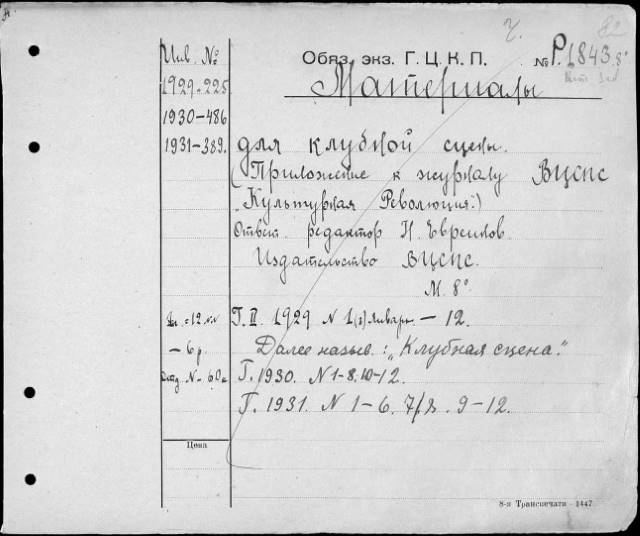 Ч.
82
Инв. №
Обяз. экз. Г. Ц. К. П. № Р. 1843 8°
1929-225
Материалы
1930-486
1931-389.
для клубной сцены.
(Приложение к журналу ВЦСПС
"Культурная Революция.")
Ответ. редактор Н. Евреинов.
Издательство ВЦСПС.
М. 8°
Г. II. 1929 N 1(8) Январь — 12.
= 12 NN
— 6 р.
Далее назыв.: "Клубная сцена."
Отд. N — 60 к
Г. 1930. N 1-8, 10-12.
Г. 1931. N 1-6. 7/8. 9-12.
Цена
8-я Транспечати - 1447